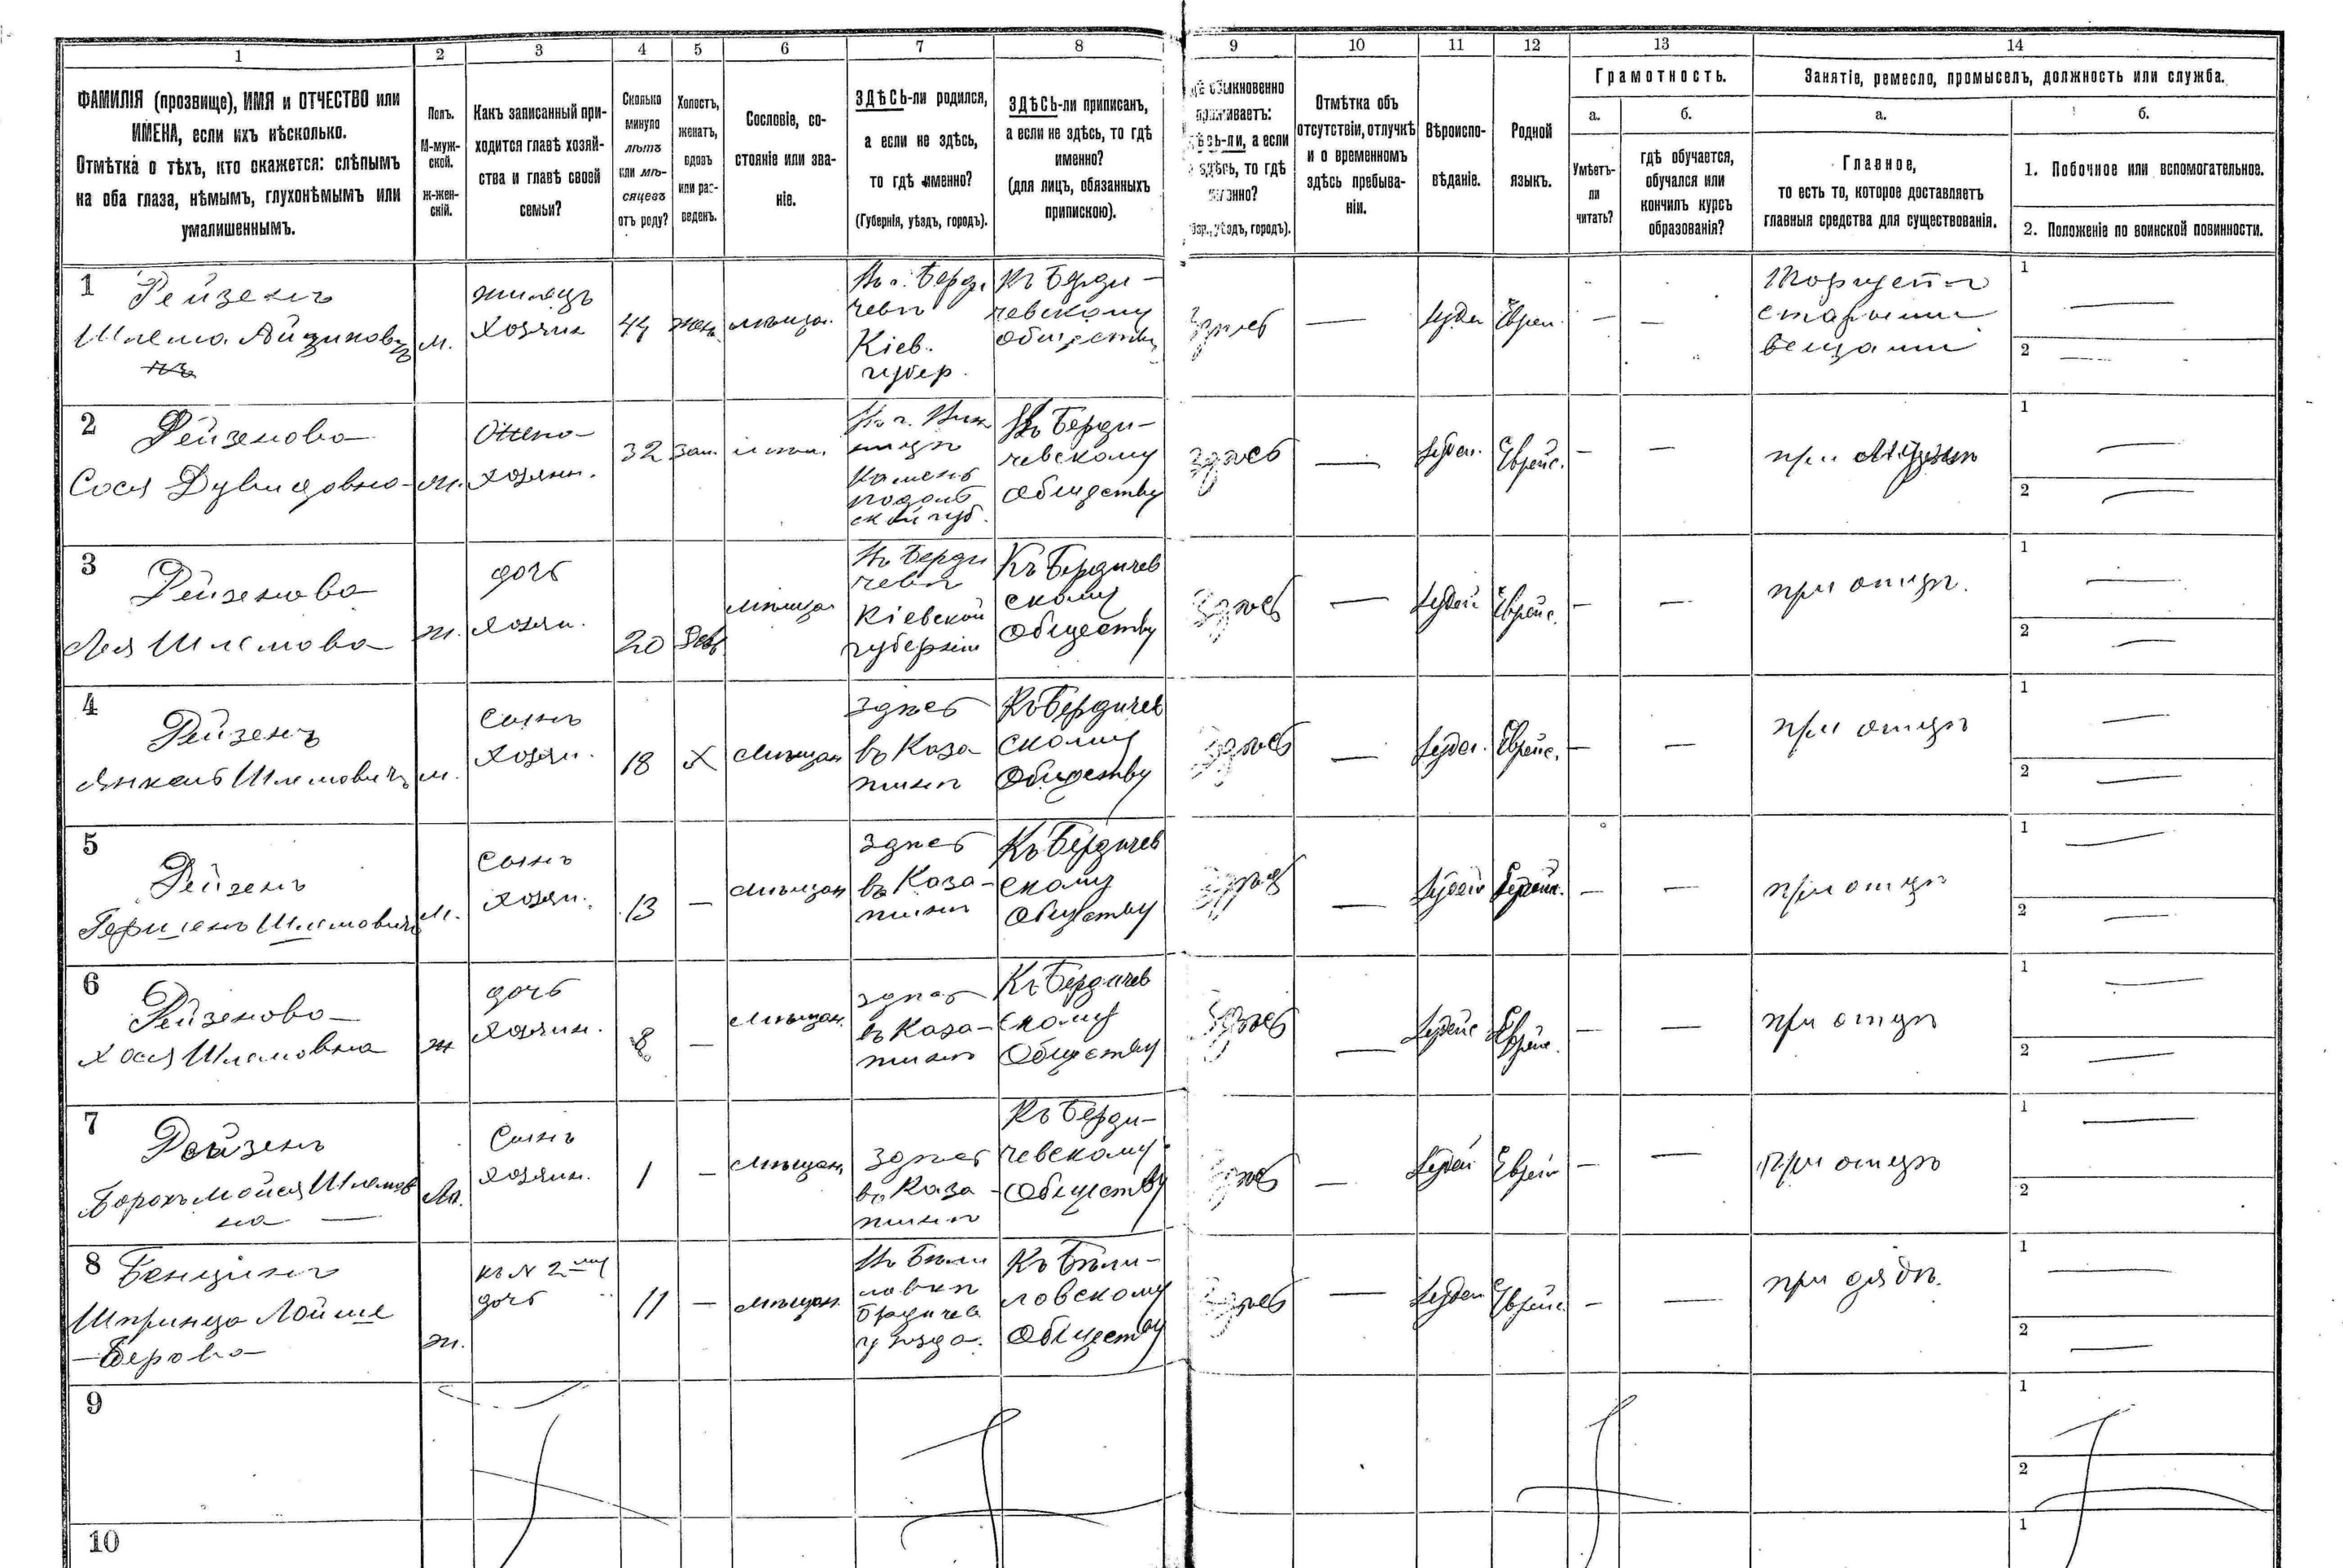 1
2
3
4
5
6
7
8
9
10
11
12
13
14
ФАМИЛІЯ (прозвище), ИМЯ и ОТЧЕСТВО или
ИМЕНА, если ихъ нѣсколько.
Отмѣтка о тѣхъ, кто окажется: слѣпымъ
на оба глаза, нѣмымъ, глухонѣмымъ или
умалишеннымъ.
Полъ.
М-муж-
ской.
ж-жен-
скій.
Какъ записанный при-
ходится главѣ хозяй-
ства и главѣ своей
семьи?
Сколько
минуло
лѣтъ
или мѣ-
сяцевъ
отъ роду?
Холостъ,
женатъ,
вдовъ
или раз-
веденъ.
Сословіе, со-
стояніе или зва-
ніе.
ЗДѢСЬ-ли родился,
а если не здѣсь,
то гдѣ именно?
(Губернія, уѣздъ, городъ).
ЗДѢСЬ-ли приписан,
а если не здѣсь, то гдѣ
именно?
(для лицъ, обязанныхъ
припискою).
обыкновенно
проживаетъ:
здѣсь-ли, а если
здѣсь, то гдѣ
уѣздъ, городъ).
Отмѣтка объ
отсутствіи, отлучкѣ
и о временномъ
здѣсь пребыва-
ніи.
Вѣроиспо-
вѣданіе.
Родной
языкъ.
Грамотность.
а.
Умѣетъ-
ли
читать?
б.
гдѣ обучается,
обучался или
кончилъ курсъ
образованія?
Занятіе, ремесло, промыселъ, должность или служба.
а.
Главное,
то есть то, которое доставляетъ
главныя средства для существованія.
б.
1. Побочное или вспомогательное.
2. Положеніе по воинской повинности.
1
Рейзенъ
Шлема Айзиковъ
м.
жилецъ
Хозяин
44
жен.
мѣщан.
Въ г. Берди
чевѣ
Кіев.
губер.
Къ Берди-
чевскому
обществу
здѣсь
Іудей
Еврей.
Торгуетъ
старыми
вещами
1
2
2
Рейзенова
Сося Дувидовна
ж.
жена
хозяин.
32
зам.
Подоль
ской губ.
Къ Берди-
чевскому
обществу
здѣсь
Іудей.
Еврейс.
при мужѣ
1
2
3
Рейзенова
Лея Шлемова
ж.
дочь
хозяи.
20
Дев.
мѣщан
Въ Берди
чевѣ
Кіевской
губерніи
Къ Бердичев
скому
Обществу
здѣсь
Іудей
Еврейс.
при отцѣ.
1
2
4
Рейзенъ
Янкель Шлемовичъ
м.
сынъ
хозяи.
18
Х
мѣщан
здѣсь
въ Каза
тинѣ
Къ Бердичев
скому
Обществу
здѣсь
Іудей.
Еврейс.
при отцѣ
1
2
5
Рейзенъ
Гершенъ Шлемовичъ
м.
сынъ
хозяи.
13
мѣщан
здѣсь
въ Каза-
тинѣ
Къ Бердичев
скому
Обществу
здѣсь
Іудей
Еврейс.
при отцѣ
1
2
6
Рейзенова
Хася Шлемовна
ж
дочь
хозяин.
8
мѣщан.
здѣсь
въ Каза-
тинѣ
Къ Бердичев
скому
Обществу
здѣсь
Іудейс
Еврейс.
при отцѣ
1
2
7
Рейзенъ
Борохъ Мойся Шлемов
м.
сынъ
хозяин.
1
мѣщан,
здѣсь
въ Каза-
тинѣ
Къ Берди-
чевскому
Обществу
здѣсь
Іудей
Еврей
при отцѣ
1
2
8
Бенционъ
Шпринца Лойше
-Берова
ж.
къ N 2 му
дочь
11
мѣщан.
Въ Бѣли
ловкѣ
Бердичев
уѣзда.
Къ Бѣли-
ловскому
Обществу
здѣсь
Іудей
Еврейс
при дядѣ.
1
2
9
1
2
10
1